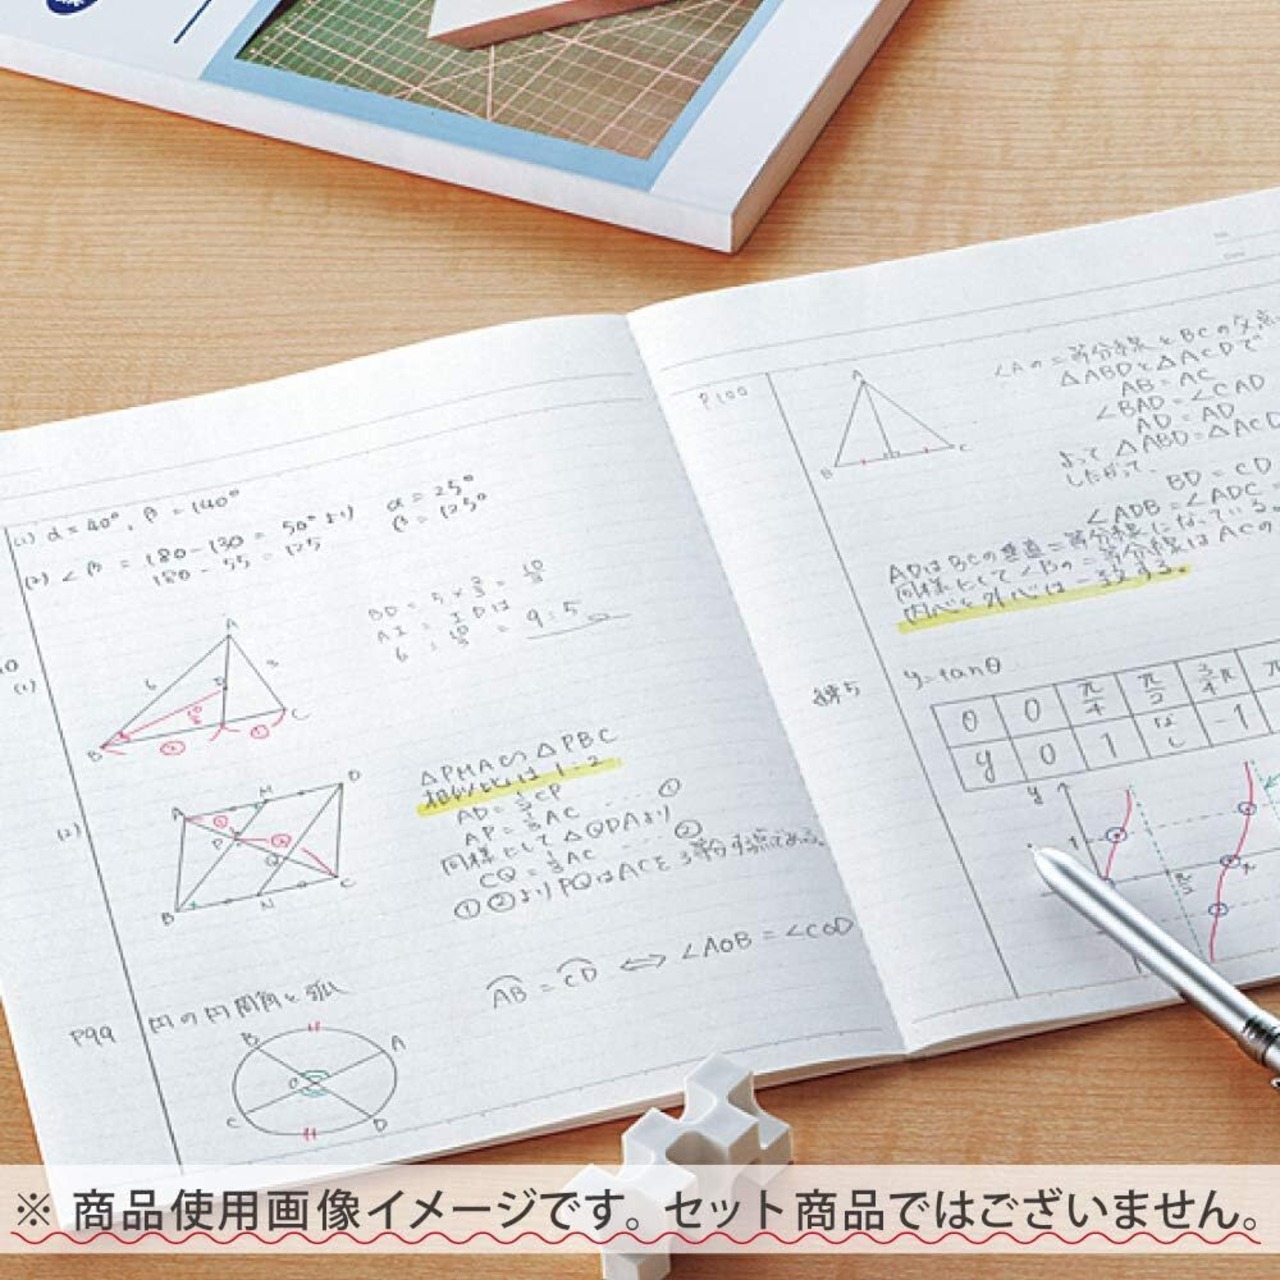 (1) α = 40°, β = 140°
(2) ∠β = 180 - 130 = 50° より α = 25°
180 - 55 = 125 β = 125°
(1)
A
6
3
B
C
②
①
BD = 5 ×
AI : ID は
= 9 : 5
(2)
A
M
D
P
Q
B
N
C
①
△PMA ∽ △PBC
相似比は 1:2
AP = 1/3 AC …… ①
同様にして △QDAより
CQ = 1/3 AC …… ②
①②より PQはACを3等分する点である。
P99
円の円周角と弧
B
A
O
C
D
AB = CD ⇔ ∠AOB = ∠COD
P.100
A
B
C
∠Aの二等分線とBCの交点
△ABDと△ACDで
AB = AC
∠BAD = ∠CAD
AD = AD
よって △ABD ≡ △ACD
したがって、
BD = CD
∠ADB = ∠ADC =
ADはBCの垂直二等分線になっている。
同様にして∠Bの二等分線はACの
内心と外心は一致する。
y = tanθ
θ 0 π/4 π/2 3/4π π
y 0 1 なし -1
y
1
x
※ 商品使用画像イメージです。セット商品ではございません。